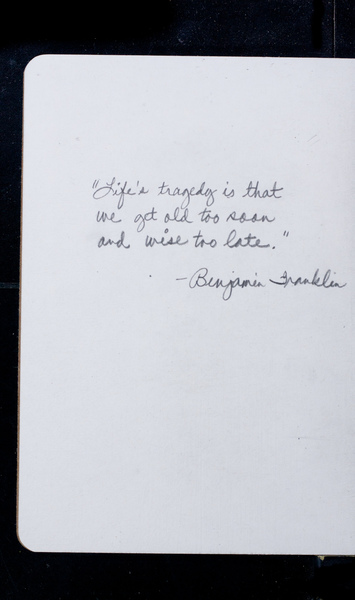 "Life's tragedy is that
we get old too soon
and wise too late."
-Benjamin Franklin